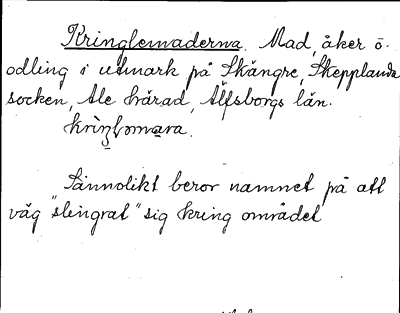 Kringlemaderna. Mad, åker o.
odling i utmark på Skängre, Skepplanda
socken, Ale härad, Älfsborgs län.
Sannolikt beror namnet på att
väg "slingrat" sig kring området